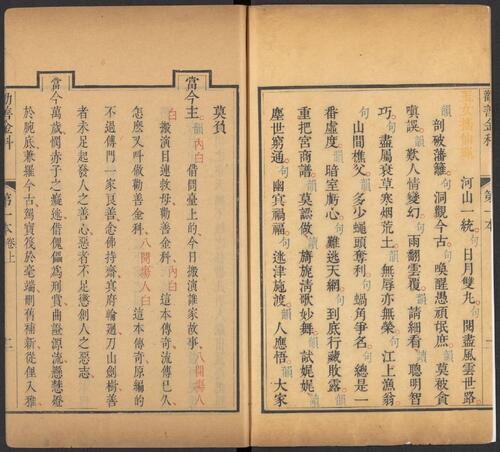 勸善金科 第一本
河山一統句日月雙丸句閱盡風雲世路
韻剖破藩籬句洞觀今古句喚醒愚頑氓庶韻莫被貪
嗔誤韻歎人情變幻句雨翻雲覆句請細看讀聰明智
巧句盡屬衰草寒烟荒土韻無辱亦無榮句江上漁翁
句山間樵父韻多少蠅頭奪利句蝸角爭名句總是一
番虛度韻暗室虧心句難逃天網句到底行藏敗露
韻重把宮商譜韻莫認做讀旖旎清歌妙舞韻試娓娓讀
塵世窮通句幽冥禍福句迷津施渡韻人應悟韻大家
莫負
當今主韻內白借問臺上的今日搬演誰家故事八開塲人
白搬演目連救母勸善金科內白這本傳奇流傳已久
怎麼又叫做勸善金科八開塲人白這本傳奇原編的
不過傅門一家良善念佛持齋冥府輪迴刀山劍樹善
者未足起發人之善心惡者不足懲創人之惡志
當今萬歲憫赤子之癡迷借傀儡為刑賞曲證源流懸慧燈
於腕底兼羅今古駕寶筏於毫端刪舊補新從俚入雅
勸善金科 第一本卷上 二